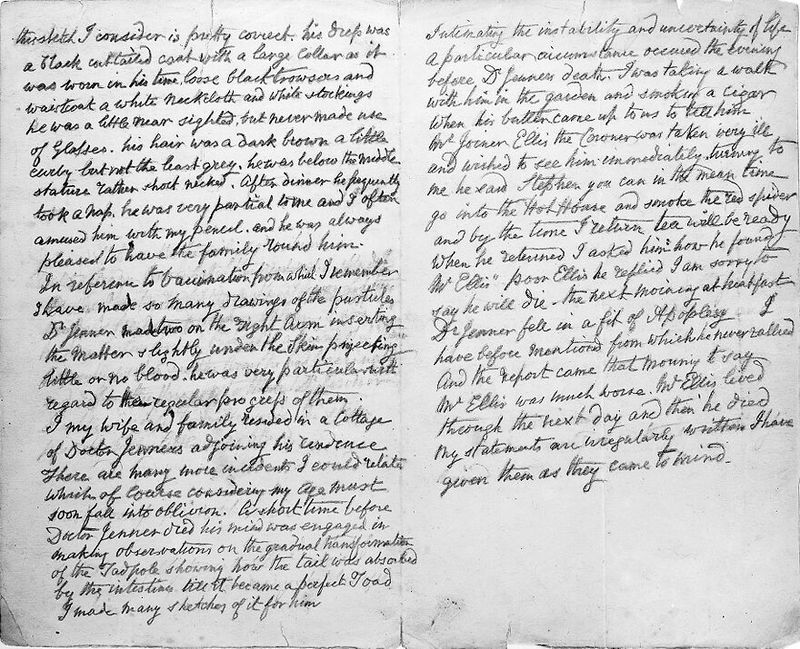 this sketch I consider is pretty correct. his dress was
a black cuttailed coat with a large collar as it
was worn in his time, loose black trowsers and
waistcoat a white neckcloth and white stockings
he was a little near sighted, but never made use
of Glasses. his hair was a dark brown a little
curly but not the least grey. he was below the middle
stature rather short necked. After dinner he frequently
took a nap. he was very partial to me and I often
amused him with my pencil. and he was always
pleased to have the family round him.
In reference to Vaccination from what I remember
I have made so many drawings of the pustules
Dr Jenner made two on the right Arm inserting
the Matter slightly under the Skin projecting
little or no blood. he was very particular with
regard to the regular progress of them
I my wife and family resided in a Cottage
of Doctor Jenners adjoining his residence
There are many more incidents I could relate
which of course considering my age must
soon fall into oblivion. A short time before
Doctor Jenner died his mind was engaged in
making observations on the gradual transformation
of the Tadpole showing how the tail was absorbed
by the intestines till it became a perfect Toad
I made many sketches of it for him
Intimating the instability and uncertainty of life
a particular circumstance occured the evening
before Dr Jenners death. I was taking a walk
with him in the garden and smoking a cigar
when his butler came up to us to tell him
Mr Joiner Ellis the Coroner was taken very ill
and wished to see him immediately. turning to
me he said Stephen you can in the mean time
go into the Hot House and smoke the red spider
and by the time I return tea will be ready
when he returned I asked him "how he found
Mr Ellis" poor Ellis he replied I am sorry to
say he will die - the next morning at breakfast
Dr Jenner fell in a fit of Apoplexy I
have before mentioned from which he never rallied
And the report came that morning to say
Mr Ellis was much worse. Mr Ellis lived
through the next day and then he died
my statements are irregularly written I have
given them as they came to mind.